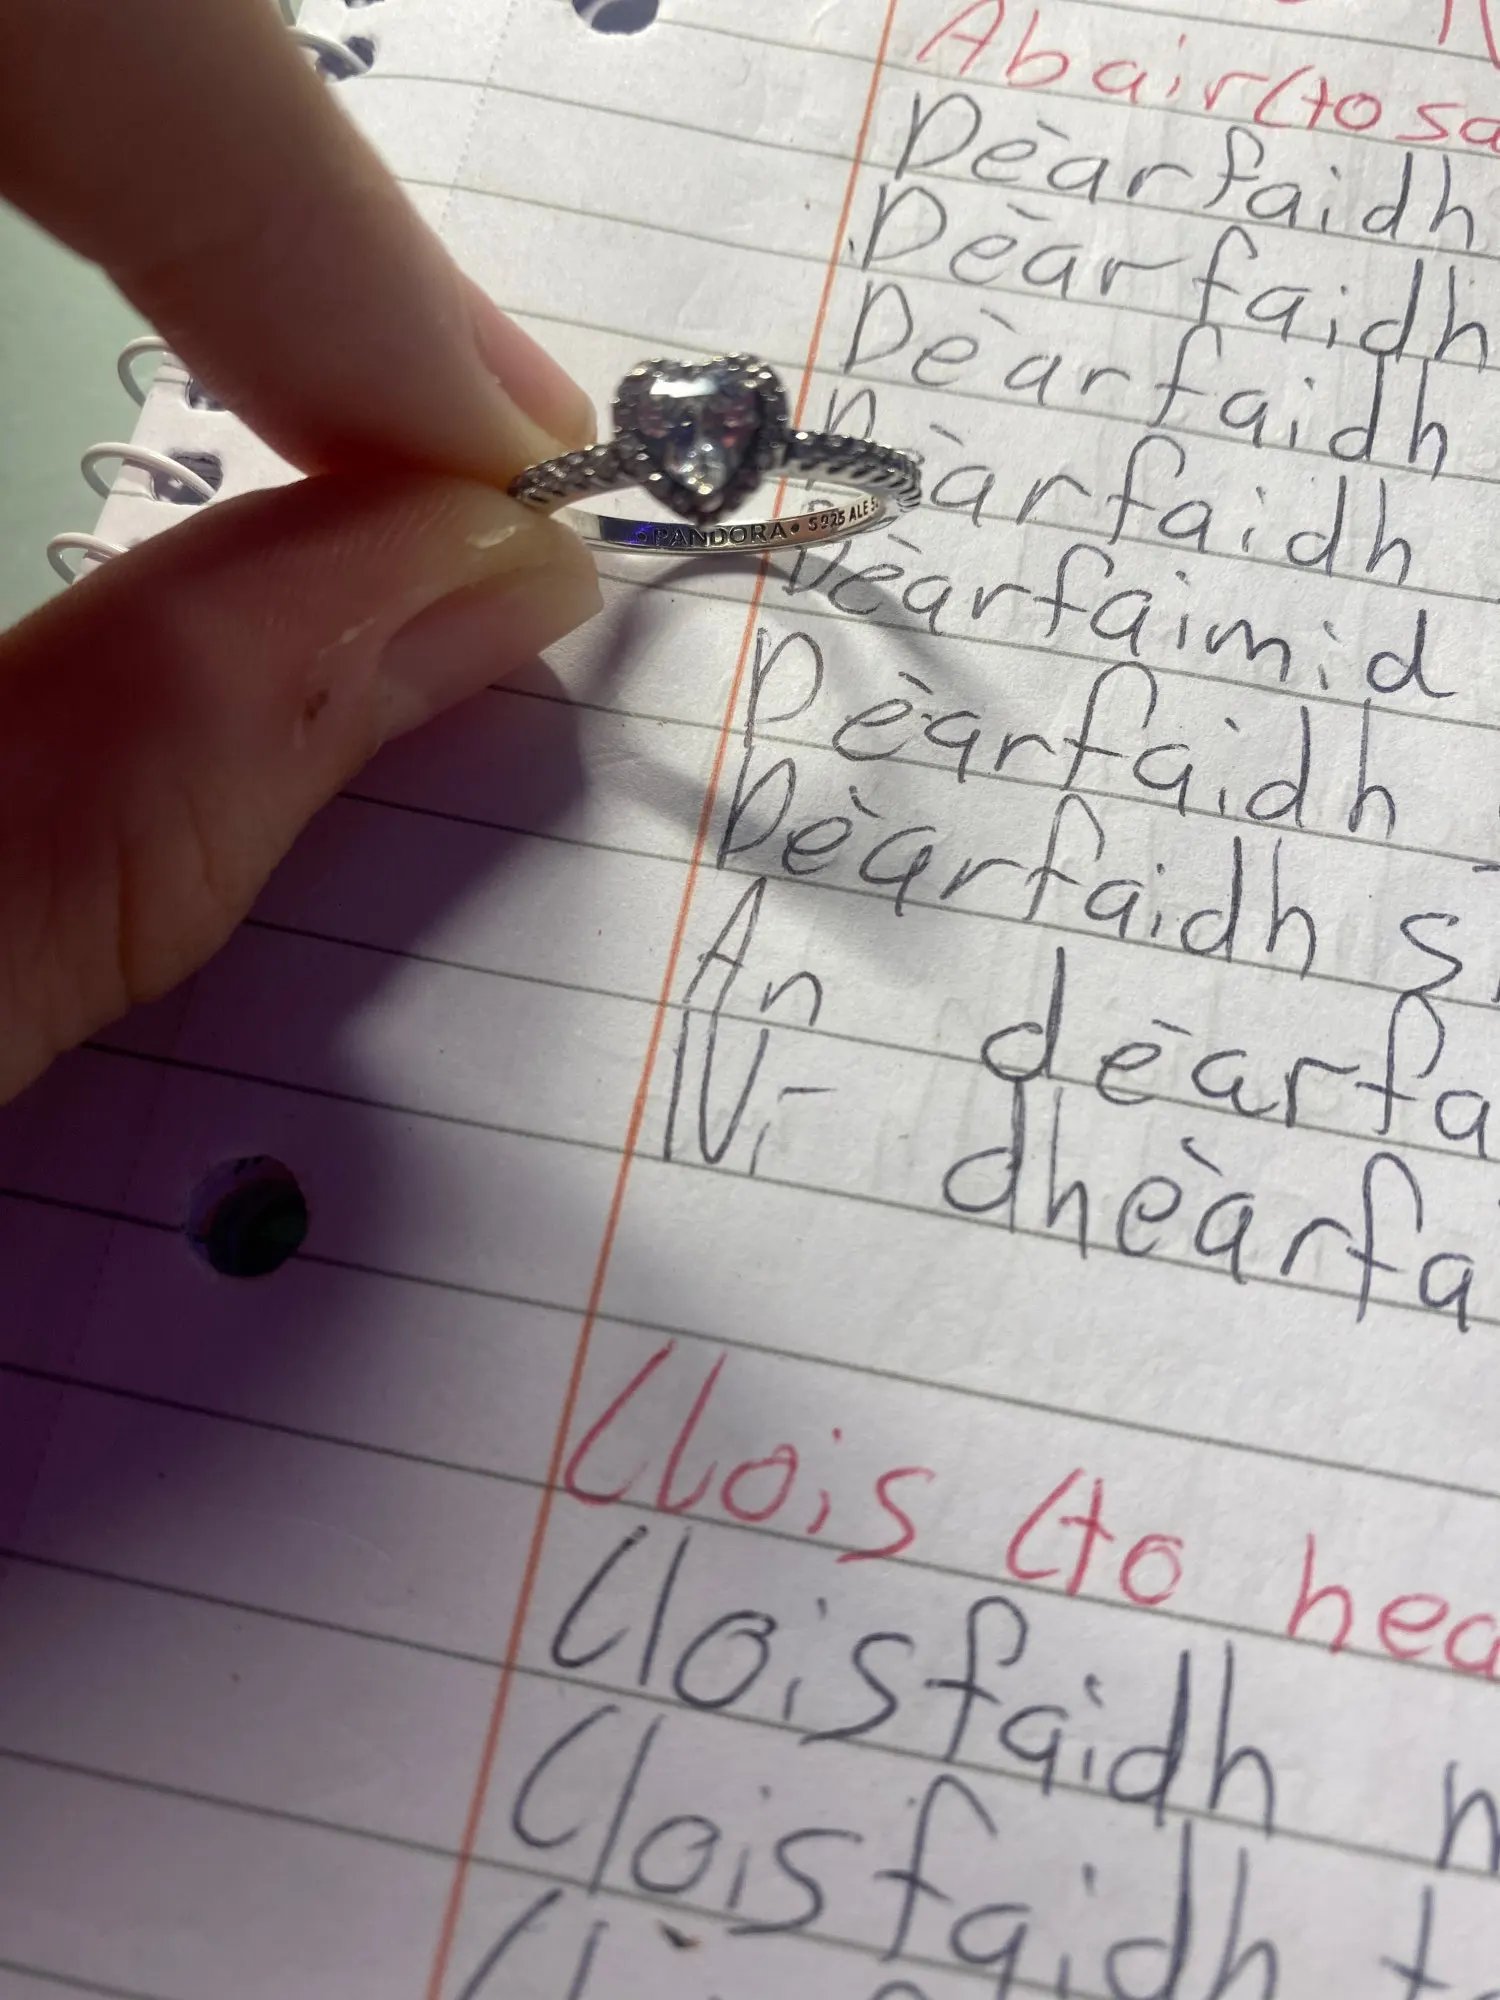 Abair (to sa
Dèarfaidh
Dèarfaidh
Dèarfaidh
Dèarfaidh
Dèarfaimid
Dèarfaidh
Dèarfaidh s
An dēarfa
Ni- dhèarfa
Clois (to hea
Cloisfaidh
Cloisfaidh t
•PANDORA• S925 ALE 5